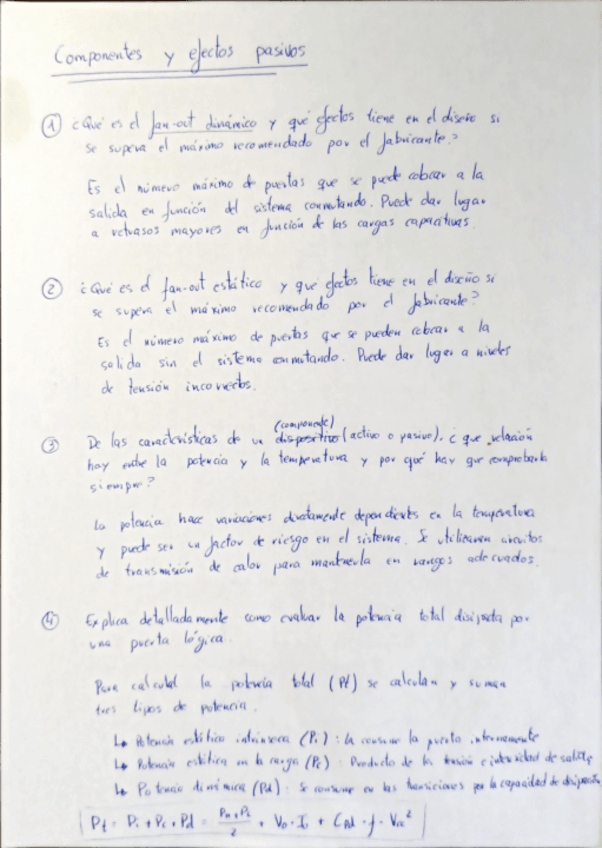 Componentes y efectos pasivos
① ¿Qué es el fan-out dinámico y qué efectos tiene en el diseño si
se supera el máximo recomendado por el fabricante?
Es el número máximo de puertas que se puede colocar a la
salida en función del sistema conmutando. Puede dar lugar
a retrasos mayores en función de las cargas capacitivas.
② ¿Qué es el fan-out estático y qué efectos tiene en el diseño si
se supera el máximo recomendado por el fabricante?
Es el número máximo de puertas que se pueden colocar a la
salida sin el sistema conmutando. Puede dar lugar a niveles
de tensión incorrectos.
(componente)
③ De las características de un dispositivo (activo o pasivo), ¿que relación
hay entre la potencia y la temperatura y por qué hay que comprobarla
siempre?
La potencia hace variaciones directamente dependientes en la temperatura
y puede ser un factor de riesgo en el sistema. Se utilizaren circuitos
de transmisión de calor para mantenerla en rangos adecuados.
④ Explica detalladamente como evaluar la potencia total disipada por
una puerta lógica.
Para calcular la potencia total (Pt) se calculan y suman
tres tipos de potencia.
↳ Potencia estática intrínseca (Pi): la consume la puerta internamente
↳ Potencia estática en la carga (Pc): Producto de la tensión e intensidad de salida
↳ Potencia dinámica (Pd): Se consume en las transiciones por la capacidad de disipación
Pt = Pi + Pc + Pd = + Vo · Io + · f · Vcc²